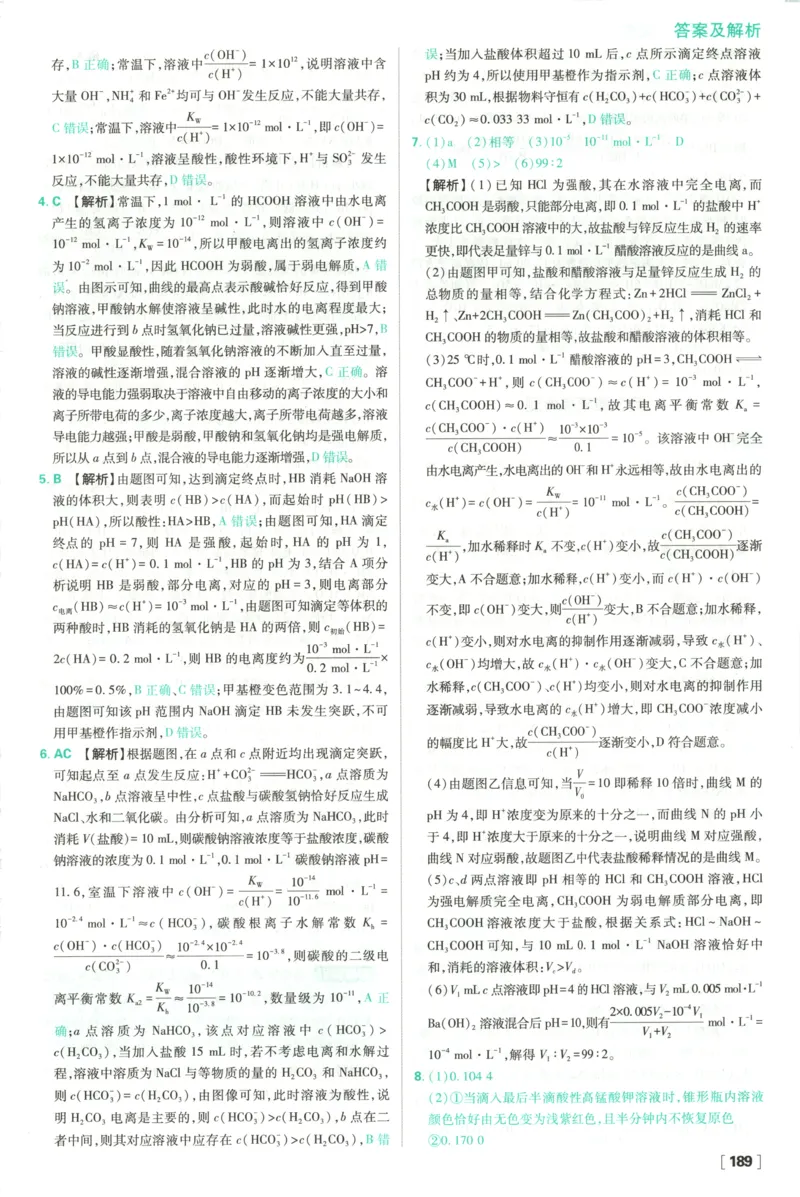 答案及解析
存,B 正确;常温下,溶液中c(OH⁻)/c(H⁺)= 1×10¹²,说明溶液中含
大量 OH⁻,NH₄⁺ 和 Fe²⁺均可与 OH⁻发生反应,不能大量共存,
C 错误;常温下,溶液中K_W/c(H⁺)= 1×10⁻¹² mol·L⁻¹,即 c(OH⁻)=
1×10⁻¹² mol·L⁻¹,溶液呈酸性,酸性环境下,H⁺与 SO₃²⁻ 发生
反应,不能大量共存,D 错误。
4. C 【解析】常温下,1 mol·L⁻¹ 的 HCOOH 溶液中由水电离
产生的氢离子浓度为 10⁻¹² mol·L⁻¹,则溶液中 c(OH⁻)=
10⁻¹² mol·L⁻¹,K_W=10⁻¹⁴,所以甲酸电离出的氢离子浓度约
为 10⁻² mol·L⁻¹,因此 HCOOH 为弱酸,属于弱电解质,A 错
误。由图示可知,曲线的最高点表示酸碱恰好反应,得到甲酸
钠溶液,甲酸钠水解使溶液呈碱性,此时水的电离程度最大;
当反应进行到 b 点时氢氧化钠已过量,溶液碱性更强,pH>7,B
错误。甲酸显酸性,随着氢氧化钠溶液的不断加入直至过量,
溶液的碱性逐渐增强,混合溶液的 pH 逐渐增大,C 正确。溶
液的导电能力强弱取决于溶液中自由移动的离子浓度的大小和
离子所带电荷的多少,离子浓度越大,离子所带电荷越多,溶液
导电能力越强;甲酸是弱酸,甲酸钠和氢氧化钠均是强电解质,
所以从 a 点到 b 点,混合液的导电能力逐渐增强,D 错误。
5. B 【解析】由题图可知,达到滴定终点时,HB 消耗 NaOH 溶
液的体积大,则表明 c(HB)>c(HA),而起始时 pH(HB)>
pH(HA),所以酸性:HA>HB,A 错误;由题图可知,HA 滴定
终点的 pH=7,则 HA 是强酸,起始时,HA 的 pH 为 1,
c(HA)=c(H⁺)=0.1 mol·L⁻¹,HB 的 pH 为 3,结合 A 项分
析说明 HB 是弱酸,部分电离,对应的 pH=3,则电离部分
c电离(HB)≈c(H⁺)=10⁻³ mol·L⁻¹,由题图可知滴定等体积的
两种酸时,HB 消耗的氢氧化钠是 HA 的两倍,则 c初始(HB)=
2c(HA)=0.2 mol·L⁻¹,则 HB 的电离度约为10⁻³ mol·L⁻¹/0.2 mol·L⁻¹×
100%=0.5%,B 正确、C 错误;甲基橙变色范围为 3.1~4.4,
由题图可知该 pH 范围内 NaOH 滴定 HB 未发生突跃,不可
用甲基橙作指示剂,D 错误。
6. AC 【解析】根据题图,在 a 点和 c 点附近均出现滴定突跃,
可知起点至 a 点发生反应:H⁺+CO₃²⁻══HCO₃⁻,a 点溶质为
NaHCO₃,b 点溶液呈中性,c 点盐酸与碳酸氢钠恰好反应生成
NaCl、水和二氧化碳。由分析可知,a 点溶质为 NaHCO₃,此时
消耗 V(盐酸)=10 mL,则碳酸钠溶液浓度等于盐酸浓度,碳酸
钠溶液的浓度为 0.1 mol·L⁻¹,0.1 mol·L⁻¹ 碳酸钠溶液 pH=
11.6,室温下溶液中 c(OH⁻)=K_W/c(H⁺)=10⁻¹⁴/10⁻¹¹·⁶ mol·L⁻¹=
10⁻²·⁴ mol·L⁻¹≈c(HCO₃⁻),碳酸根离子水解常数 K_h=
c(OH⁻)·c(HCO₃⁻)/c(CO₃²⁻)≈10⁻²·⁴×10⁻²·⁴/0.1=10⁻³·⁸,则碳酸的二级电
离平衡常数 K_a2=K_W/K_h≈10⁻¹⁴/10⁻³·⁸=10⁻¹⁰·²,数量级为 10⁻¹¹,A 正
确;a 点溶质为 NaHCO₃,该点对应溶液中 c(HCO₃⁻)>
c(H₂CO₃),当加入盐酸 15 mL 时,若不考虑电离和水解过
程,溶液中溶质为 NaCl 与等物质的量的 H₂CO₃ 和 NaHCO₃,
则 c(HCO₃⁻)=c(H₂CO₃),由图像可知,此时溶液为酸性,说
明 H₂CO₃ 电离是主要的,则 c(HCO₃⁻)>c(H₂CO₃),b 点在二
者中间,则其对应溶液中应存在 c(HCO₃⁻)>c(H₂CO₃),B 错
误;当加入盐酸体积超过 10 mL 后,c 点所示滴定终点溶液
pH 约为 4,所以使用甲基橙作为指示剂,C 正确;c 点溶液体
积为 30 mL,根据物料守恒有 c(H₂CO₃)+c(HCO₃⁻)+c(CO₃²⁻)+
c(CO₂)≈0.033 33 mol·L⁻¹,D 错误。
7. (1)a (2)相等 (3)10⁻⁵ 10⁻¹¹ mol·L⁻¹ D
(4)M (5)> (6)99∶2
【解析】(1)已知 HCl 为强酸,其在水溶液中完全电离,而
CH₃COOH 是弱酸,只能部分电离,即 0.1 mol·L⁻¹ 的盐酸中 H⁺
浓度比 CH₃COOH 溶液中的大,故盐酸与锌反应生成 H₂ 的速率
更快,即代表足量锌与 0.1 mol·L⁻¹ 醋酸溶液反应的是曲线 a。
(2)由题图甲可知,盐酸和醋酸溶液与足量锌反应生成 H₂ 的
总物质的量相等,结合化学方程式:Zn+2HCl══ZnCl₂+
H₂↑、Zn+2CH₃COOH══Zn(CH₃COO)₂+H₂↑,消耗 HCl 和
CH₃COOH 的物质的量相等,故盐酸和醋酸溶液的体积相等。
(3)25 ℃时,0.1 mol·L⁻¹ 醋酸溶液的 pH=3,CH₃COOH⇌
CH₃COO⁻+H⁺,则 c(CH₃COO⁻)≈c(H⁺)=10⁻³ mol·L⁻¹,
c(CH₃COOH)≈0.1 mol·L⁻¹,故其电离平衡常数 K_a=
c(CH₃COO⁻)·c(H⁺)/c(CH₃COOH)≈10⁻³×10⁻³/0.1=10⁻⁵。该溶液中 OH⁻完全
由水电离产生,水电离出的 OH⁻和 H⁺永远相等,故由水电离出的
c水(H⁺)=c(OH⁻)=K_W/c(H⁺)=10⁻¹¹ mol·L⁻¹。c(CH₃COO⁻)/c(CH₃COOH)=
K_a/c(H⁺),加水稀释时 K_a 不变,c(H⁺)变小,故c(CH₃COO⁻)/c(CH₃COOH)逐渐
变大,A 不合题意;加水稀释,c(H⁺)变小,而 c(H⁺)·c(OH⁻)
不变,即 c(OH⁻)变大,则c(OH⁻)/c(H⁺)变大,B 不合题意;加水稀释,
c(H⁺)变小,则对水电离的抑制作用逐渐减弱,导致 c水(H⁺)、
c水(OH⁻)均增大,故 c水(H⁺)·c水(OH⁻)变大,C 不合题意;加
水稀释,c(CH₃COO⁻)、c(H⁺)均变小,则对水电离的抑制作用
逐渐减弱,导致水电离的 c水(H⁺)增大,即 CH₃COO⁻浓度减小
的幅度比 H⁺大,故c(CH₃COO⁻)/c(H⁺)逐渐变小,D 符合题意。
(4)由题图乙信息可知,当V/V₀=10 即稀释 10 倍时,曲线 M 的
pH 为 4,即 H⁺浓度变为原来的十分之一,而曲线 N 的 pH 小
于 4,即 H⁺浓度大于原来的十分之一,说明曲线 M 对应强酸,
曲线 N 对应弱酸,故题图乙中代表盐酸稀释情况的是曲线 M。
(5)c、d 两点溶液即 pH 相等的 HCl 和 CH₃COOH 溶液,HCl
为强电解质完全电离,CH₃COOH 为弱电解质部分电离,即
CH₃COOH 溶液浓度大于盐酸,根据关系式:HCl~NaOH~
CH₃COOH 可知,与 10 mL 0.1 mol·L⁻¹ NaOH 溶液恰好中
和,消耗的溶液体积:V_c>V_d。
(6)V₁ mL c 点溶液即 pH=4 的 HCl 溶液,与 V₂ mL 0.005 mol·L⁻¹
Ba(OH)₂ 溶液混合后 pH=10,则有2×0.005V₂-10⁻⁴V₁/V₁+V₂ mol·L⁻¹=
10⁻⁴ mol·L⁻¹,解得 V₁∶V₂=99∶2。
8. (1)0.104 4
(2)①当滴入最后半滴酸性高锰酸钾溶液时,锥形瓶内溶液
颜色恰好由无色变为浅紫红色,且半分钟内不恢复原色
②0.170 0
[189]